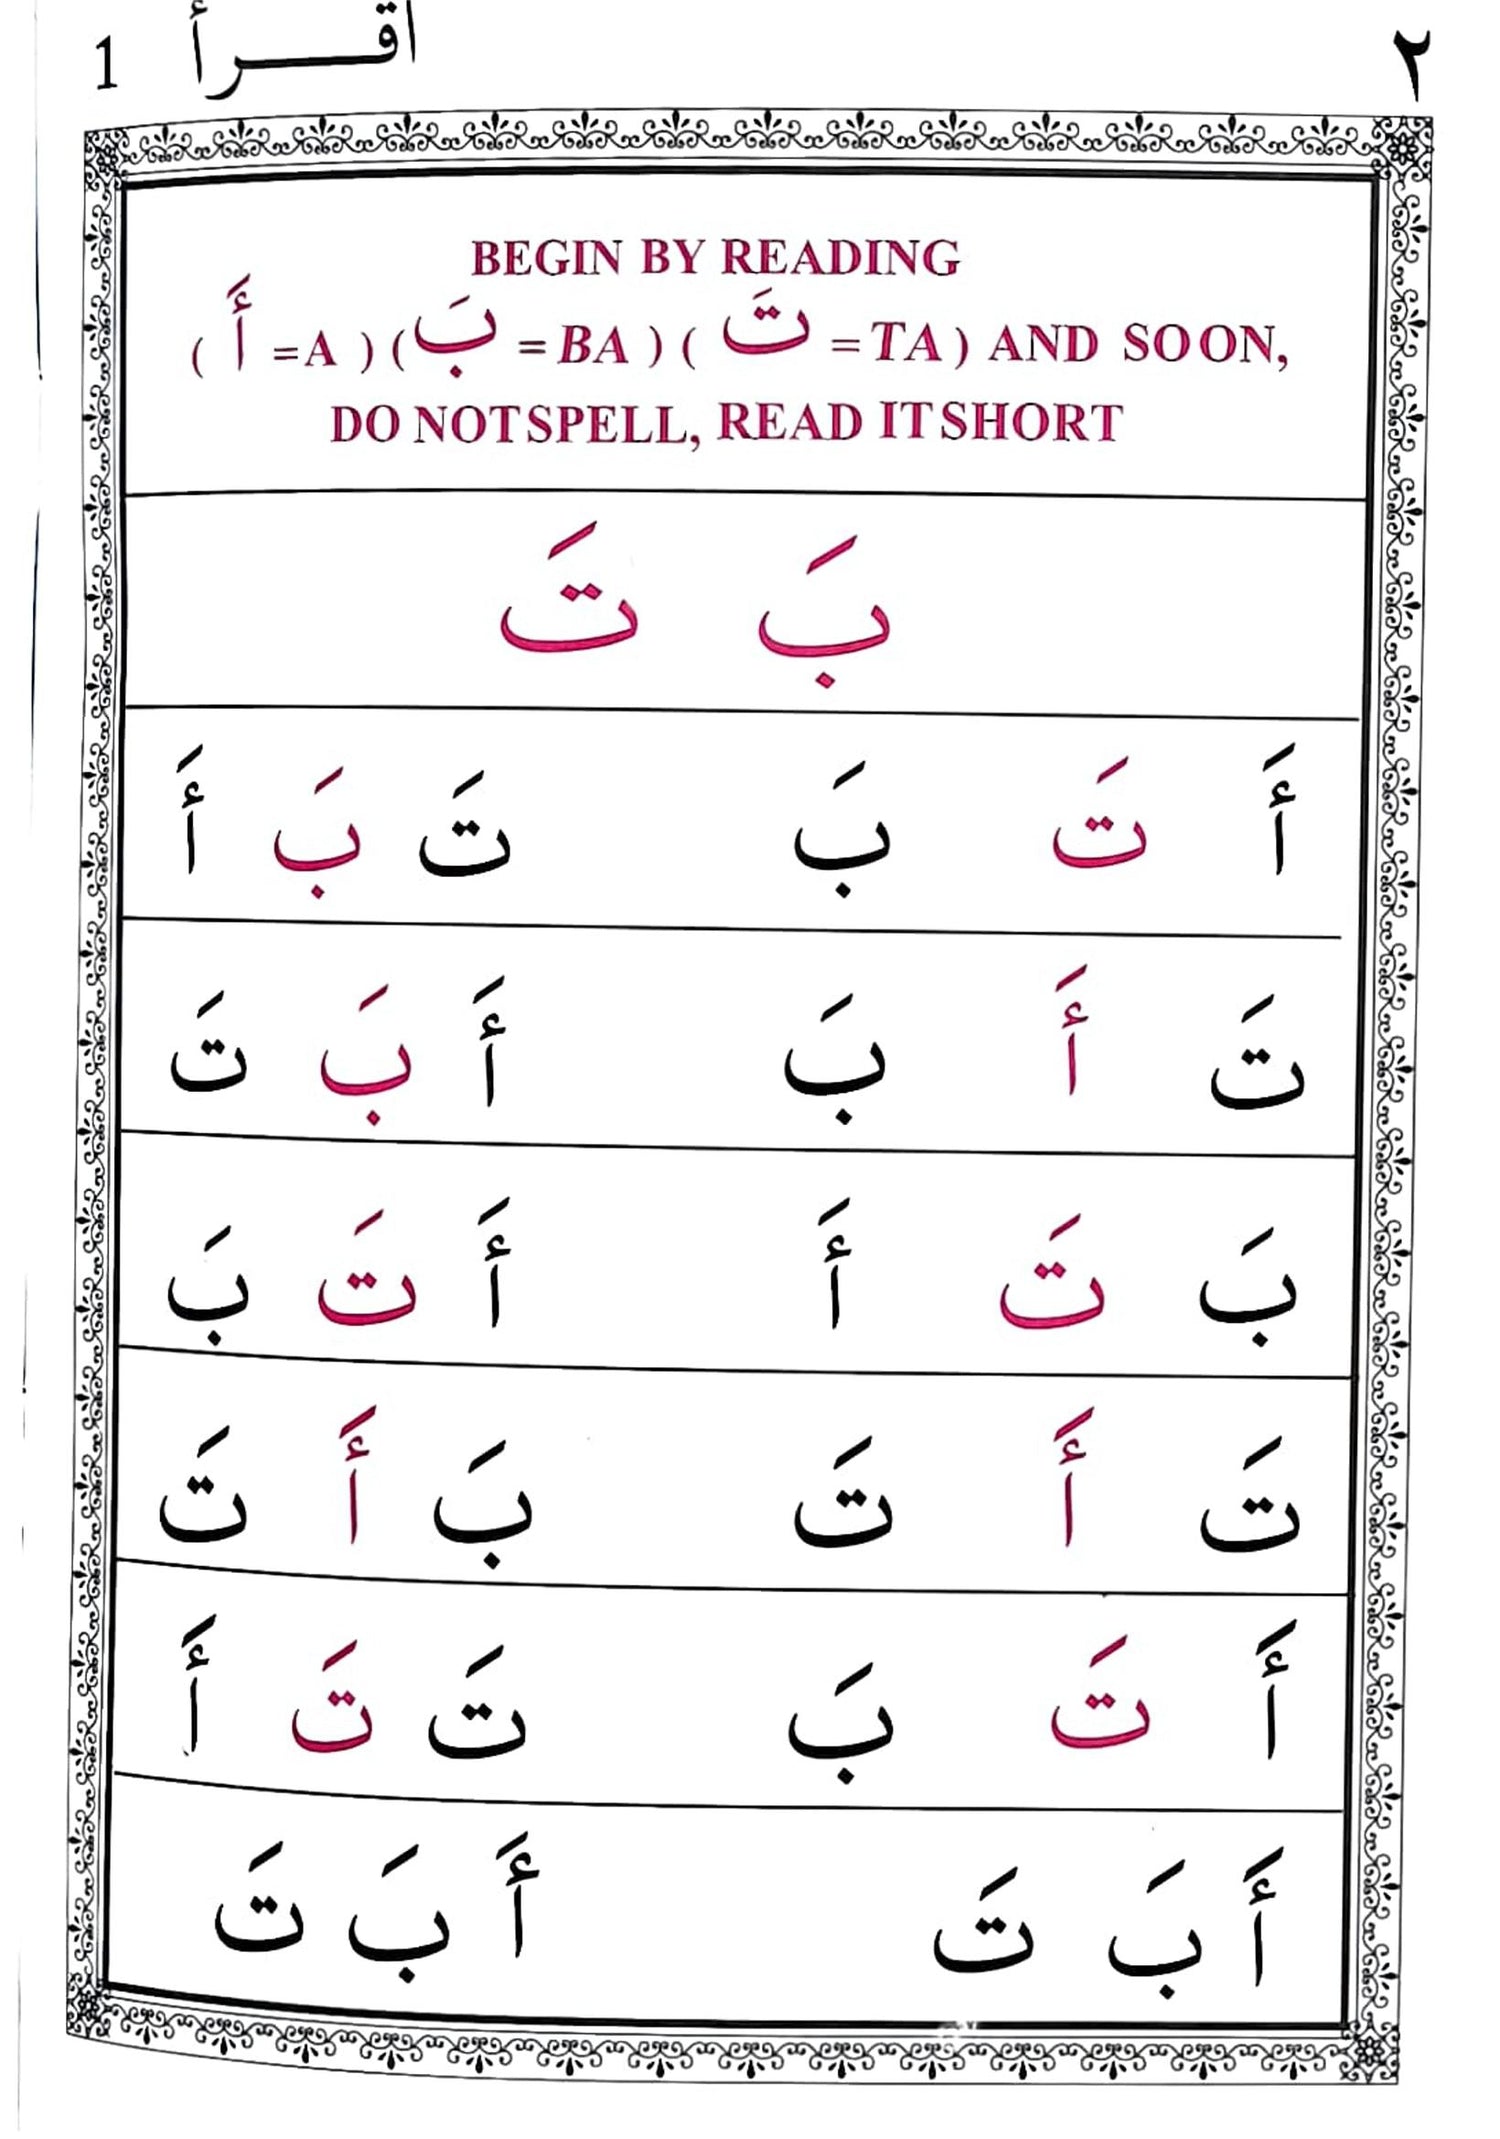 ٢ اقـرأ 1
BEGIN BY READING
( أَ =A ) ( بَ = BA ) ( تَ = TA ) AND SO ON,
DO NOT SPELL, READ IT SHORT
بَ تَ
أَ تَ بَ تَ بَ أَ
تَ أَ بَ أَ بَ تَ
بَ تَ أَ أَ تَ بَ
تَ أَ تَ بَ أَ تَ
أَ تَ بَ تَ تَ أَ
أَ بَ تَ أَ بَ تَ